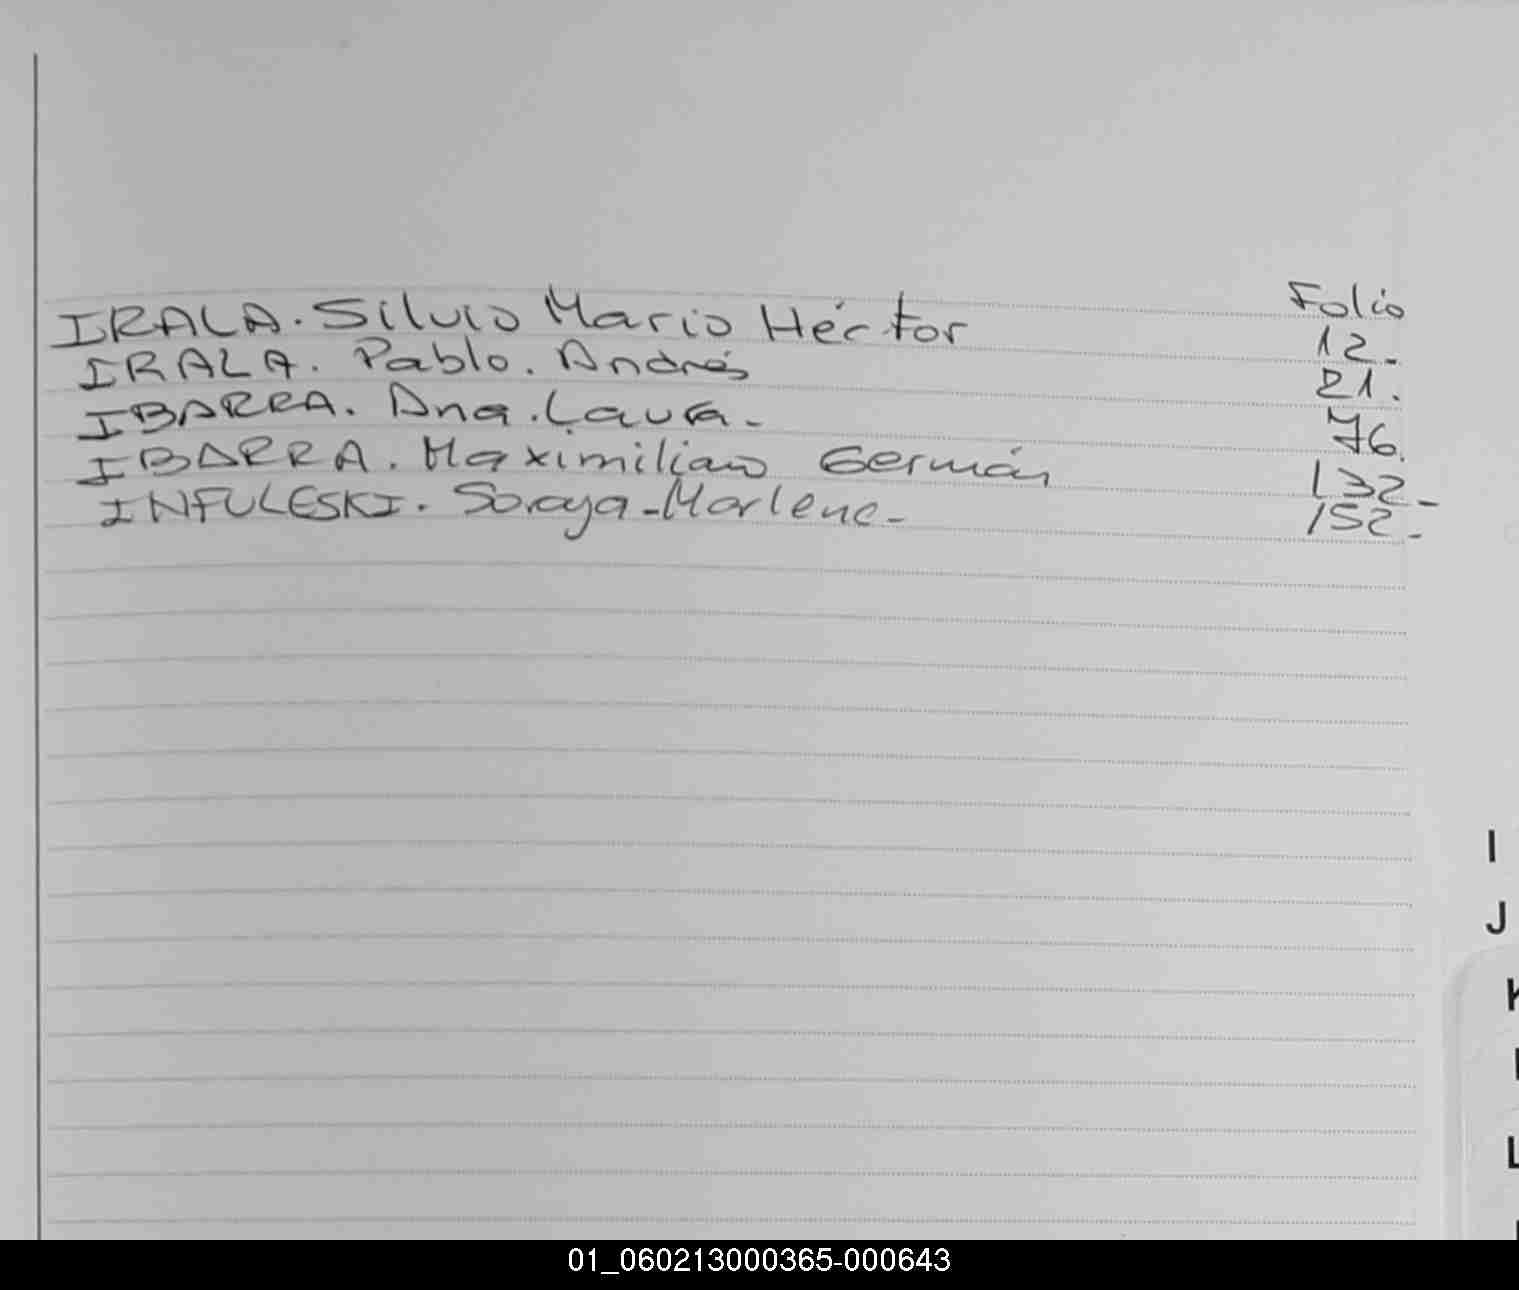 Folio
IRALA. Silvio Mario Héctor 12.-
IRALA. Pablo. Andrés 21.
IBARRA. Ana. Laura.- 76.
IBARRA. Maximiliano Germán 132-
INFULESKI. Soraya-Marlene- 152-
I
J
K
L
01_060213000365-000643